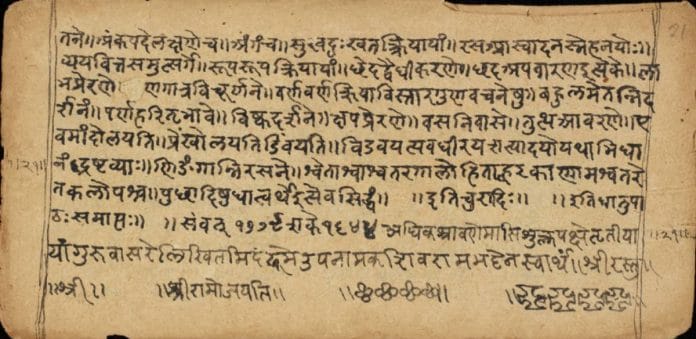 तने॥अंकपदेलक्षणेच॥अंगच॥सुखदुःखतत्क्रियायां॥रसआस्वादनस्नेहनयोः॥
व्ययवित्तसमुत्सर्गे॥रूपरूपक्रियायां॥छेदद्वैधीकरणे॥छदअपवारणइत्येके॥ला
भप्रेरणे॥ व्रणगात्रविचूर्णने॥वर्णवर्णक्रियाविस्तारगुणवचनेषु॥बहुलमेतन्निद
र्शनं॥पर्णहरितभावे॥विष्कदर्शने॥क्षपप्रेरणे॥वसनिवासे॥तुत्थआवरणे॥ए
वमांदोलयति॥प्रेंखोलयतिविडंबयति॥ अवधीरयत्यादयोयथाभिधा
नंद्रष्टव्याः॥णिङंगान्निरसने॥श्वेताश्वाश्वतरगालोडिताह्वरकाणामश्वतरे
तकलोपश्च॥पुछादिषुधात्वर्थेइत्येवसिद्धं॥ ॥इतिचुरादिः॥ ॥इतिधातुपा
ठःसमाप्तः॥ ॥संवत् १७७९शके१६४४ अधिकश्रावणेमासिशुक्लपक्षेतृतीया
यांगुरुवासरेलिखितमिदं उपनामकशिवरामभट्टेनस्वार्थं॥श्रीरस्तु॥
॥श्री॥ ॥श्रीरामोजयति॥